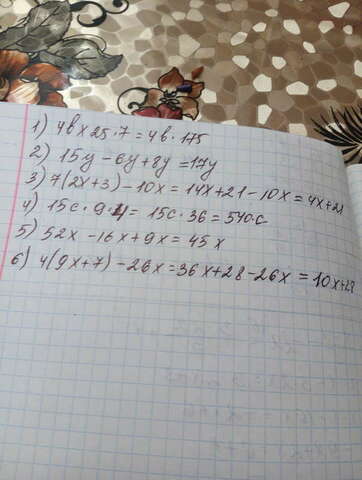 1) 4в × 25 · 7 = 4в · 175
2) 15y - 6y + 8y = 17y
3) 7(2x+3) - 10x = 14x + 21 - 10x = 4x + 21
4) 15c · 9 · 4 = 15c · 36 = 540 · c
5) 52x - 16x + 9x = 45x
6) 4(9x+7) - 26x = 36x + 28 - 26x = 10x + 28